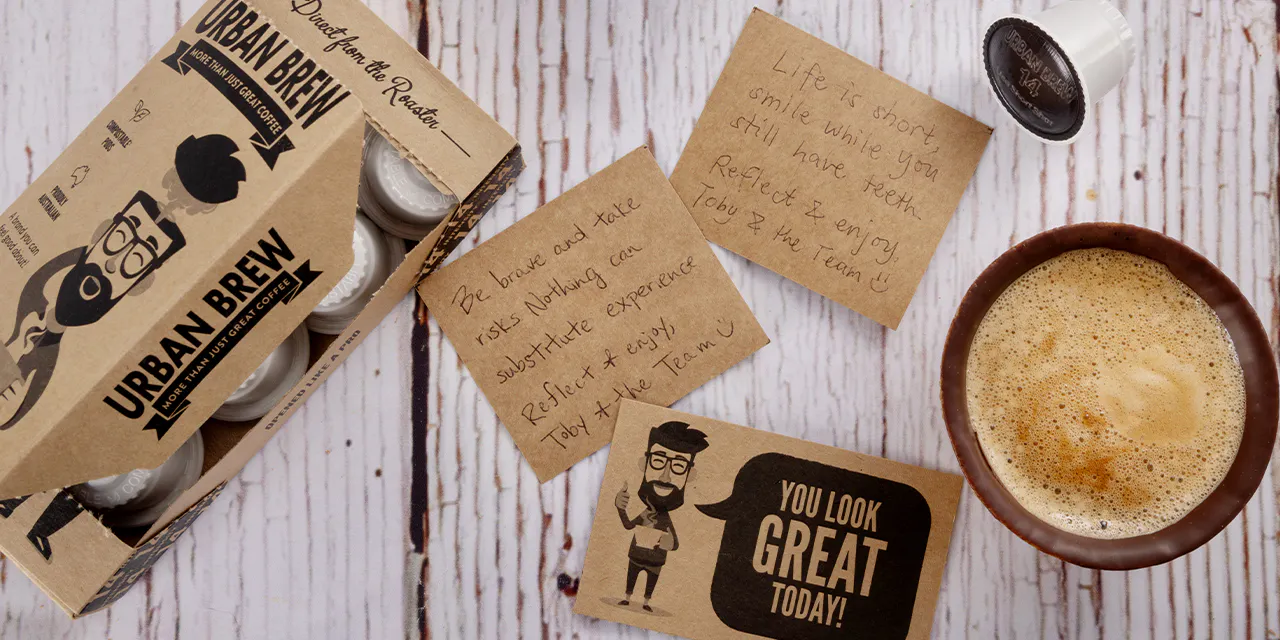 Direct from the Roaster
URBAN BREW
MORE THAN JUST GREAT COFFEE
COMPOSTABLE
PODS
PROUDLY
AUSTRALIAN
A brand you can
feel good about!
URBAN BREW
MORE THAN JUST GREAT COFFEE
OPENED LIKE A PRO
Be brave and take
risks Nothing can
substitute experience
Reflect & enjoy,
Toby & the Team
Life is short,
smile while you
still have teeth
Reflect & enjoy,
Toby & the Team
YOU LOOK
GREAT
TODAY!
URBAN BREW
14